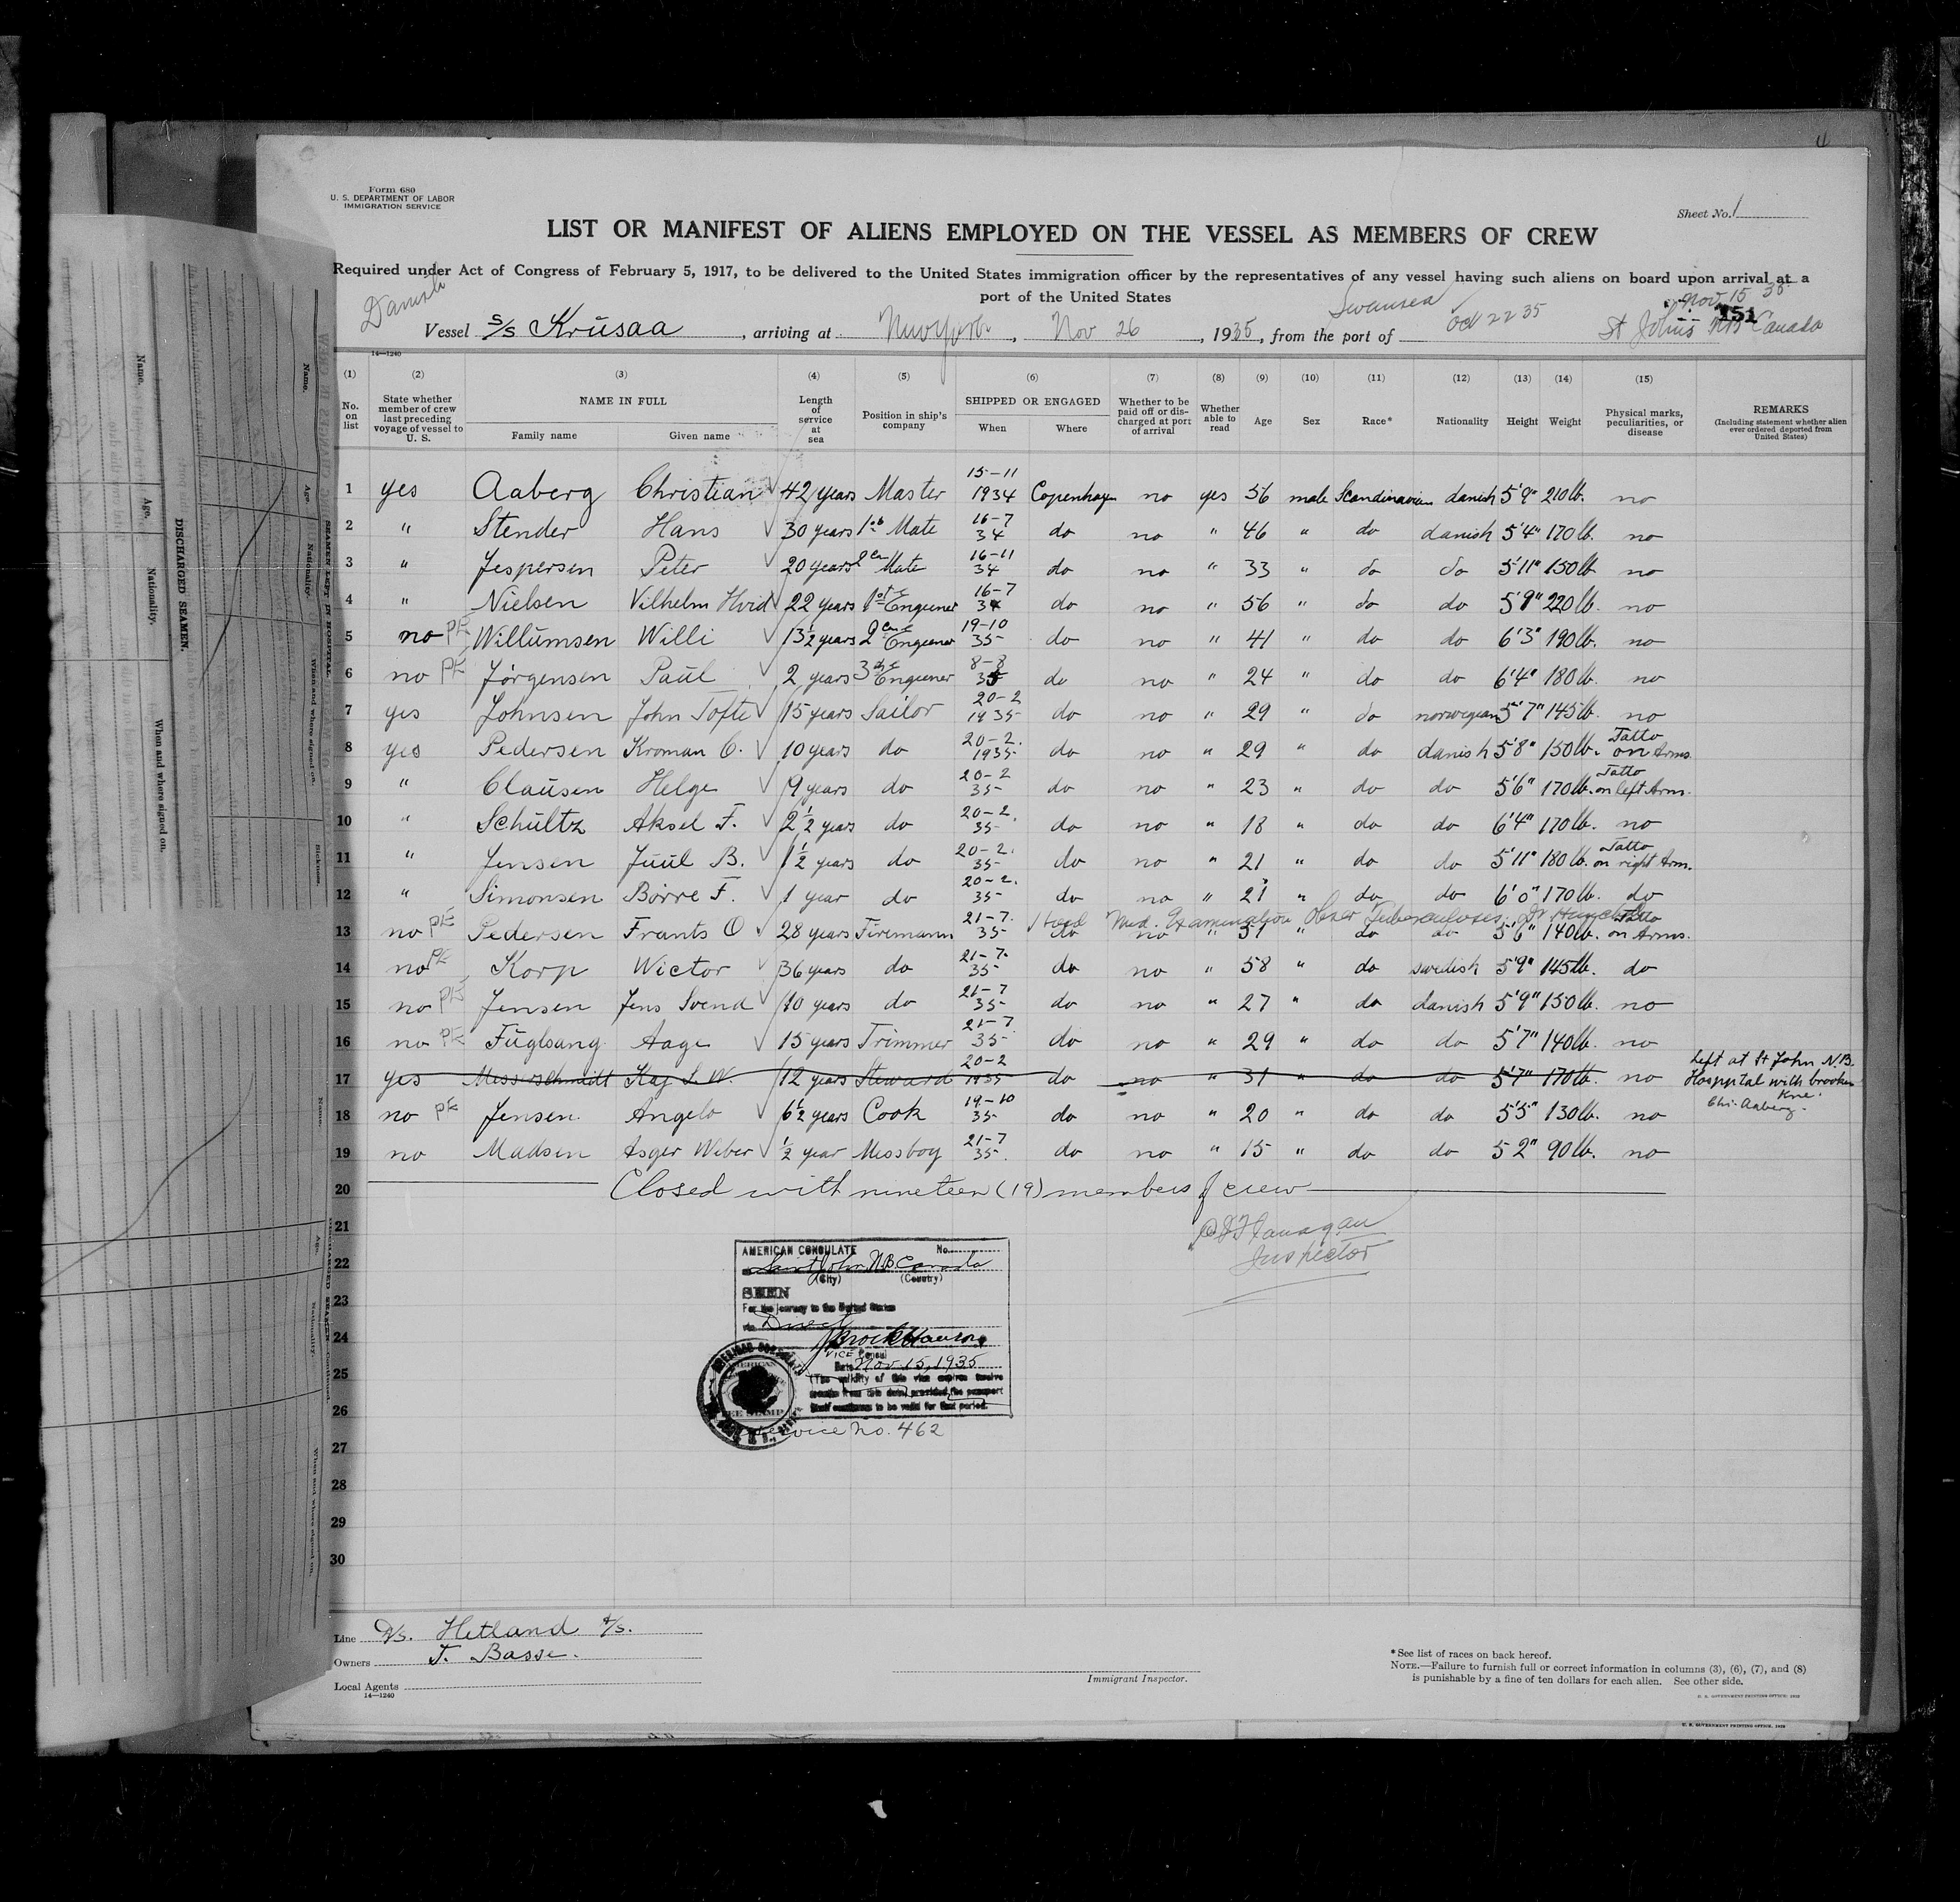 Form 680
U. S. DEPARTMENT OF LABOR
IMMIGRATION SERVICE
Sheet No. 1
LIST OR MANIFEST OF ALIENS EMPLOYED ON THE VESSEL AS MEMBERS OF CREW
Required under Act of Congress of February 5, 1917, to be delivered to the United States immigration officer by the representatives of any vessel having such aliens on board upon arrival at a
port of the United States
Danish
Swansea Oct 22 35
Nov 15 35
151
Vessel S/S Krüsaa, arriving at New York, Nov 26, 1935, from the port of St Johns NB Canada
14—1240
(1) (2) (3) (4) (5) (6) (7) (8) (9) (10) (11) (12) (13) (14) (15)
No. on list
State whether member of crew last preceding voyage of vessel to U. S.
NAME IN FULL
Family name
Given name
Length of service at sea
Position in ship's company
SHIPPED OR ENGAGED
When
Where
Whether to be paid off or discharged at port of arrival
Whether able to read
Age
Sex
Race*
Nationality
Height
Weight
Physical marks, peculiarities, or disease
REMARKS
(Including statement whether alien ever ordered deported from United States)
1 yes Aaberg Christian 42 years Master 15-11 1934 Copenhagen no yes 56 male Scandinavian danish 5'9" 210 lb. no
2 " Stender Hans 30 years 1st Mate 16-7 34 do no " 46 " do danish 5'4" 170 lb. no
3 " Jespersen Peter 20 years Mate 16-11 34 do no " 33 " do do 5'11" 150 lb no
4 " Nielsen Vilhelm Hvid 22 years 1st Engineer 16-7 34 do no " 56 " do do 5'9" 220 lb. no
5 no PE Willümsen Willi 13½ years 2 Engineer 19-10 35 do no " 41 " do do 6'3" 190 lb. no
6 no PE Jørgensen Paül 2 years 3 Engineer 8-8 35 do no " 24 " do do 6'4" 180 lb. no
7 yes Johnsen John Tofte 15 years Sailor 20-2 1935 do no " 29 " do norwegian 5'7" 145 lb. no
8 yes Pedersen Kroman C. 10 years do 20-2. 1935 do no " 29 " do danish 5'8" 150 lb. Tatto on Arms.
9 " Claüsen Helge 9 years do 20-2 35 do no " 23 " do do 5'6" 170 lb. Tatto on left Arm.
10 " Schültz Aksel F. 2½ years do 20-2. 35 do no " 18 " do do 6'4" 170 lb. no
11 " Jensen Juül B. 1½ years do 20-2. 35 do no " 21 " do do 5'11" 180 lb. Tatto on right Arm.
12 " Simonsen Börre F. 1 year do 20-2. 35 do no " 21 " do do 6'0" 170 lb. do
Med. Examination Tuberculosis
13 no PE Pedersen Frants O 28 years Firemann 21-7. 35 do no " 51 " do do 5'6" 140 lb. Tatto on Arms.
14 no PE Korp Wictor 36 years do 21-7. 35 do no " 58 " do swedish 5'9" 145 lb. do
15 no PE Jensen Jens Svend 10 years do 21-7 35 do no " 27 " do danish 5'9" 150 lb. no
16 no PE Füglsang Aage 15 years Trimmer 21-7 35 do no " 29 " do do 5'7" 140 lb. no
17 yes Messerschmidt Kaj S. W. 12 years Steward 20-2 1935 do no " 31 " do do 5'7" 170 lb. no Left at St John N.B. Hospital with brooken Kne. Chr. Aaberg.
18 no PE Jensen Angelo 6½ years Cook 19-10 35 do no " 20 " do do 5'5" 130 lb. no
19 no Madsen Asger Weber ½ year Messboy 21-7 35 do no " 15 " do do 5 2" 90 lb. no
20 Closed with nineteen (19) members of crew
21
Flanagan
Inspector
22
23
24
25
26
27
28
29
30
AMERICAN CONSULATE No.
Saint John, N.B. Canada
(City) (Country)
SEEN
For the journey to the United States
via Direct
VICE Consul
Date Nov. 15, 1935
(The validity of this visa expires twelve
months from this date, provided the passport
itself continues to be valid for that period.
Service No. 462
Line D/S. Hetland A/S.
Owners J. Basse.
Local Agents
14—1240
Immigrant Inspector.
*See list of races on back hereof.
NOTE.—Failure to furnish full or correct information in columns (3), (6), (7), and (8)
is punishable by a fine of ten dollars for each alien. See other side.
U. S. GOVERNMENT PRINTING OFFICE
DISCHARGED SEAMEN.
Name.
Age.
Nationality.
When and where signed on.